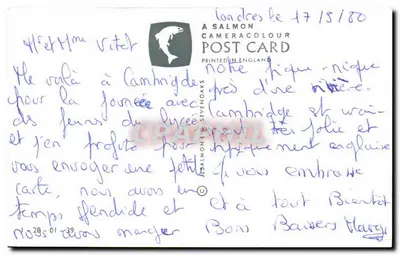 Londres le 17/5/80
A SALMON
CAMERACOLOUR
POST CARD
PRINTED IN ENGLAND
Mr et Mme
Me voilà à Cambrigde
pour la journée avec
des jeunes du lycée
et j'en profite pour
vous envoyer une petite
carte, nous avons un
temps splendide et
Nous avons manger
notre pique-nique
près d'une rivière.
Cambridge est vrai-
ment très jolie et
typiquement anglaise
je vous embrasse
et à tout Bientôt
Bons Baisers
A SALMON SEVENOAKS
©